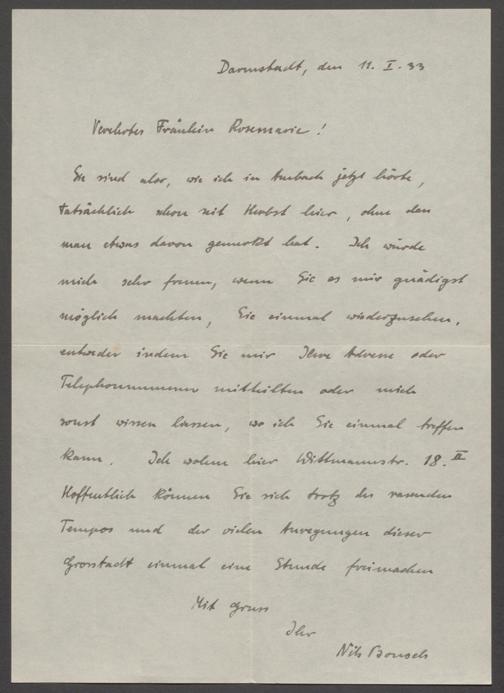 Darmstadt, den 11. I. 33
Verehrtes Fräulein Rosemarie!
Sie sind also, wie ich in Ambach jetzt hörte,
tatsächlich schon seit Herbst hier, ohne dass
man etwas davon gemerkt hat. Ich würde
mich sehr freuen, wenn Sie es mir gnädigst
möglich machten, Sie einmal wiederzusehen,
entweder indem Sie mir Ihre Adresse oder
Telephonnummer mitteilten oder mich
sonst wissen lassen, wo ich Sie einmal treffen
kann. Ich wohne hier Wittmannstr. 18. II
Hoffentlich können Sie sich trotz des rasenden
Tempos und der vielen Anregungen dieser
Grosstadt einmal eine Stunde freimachen
Mit Gruss
Ihr
Nils